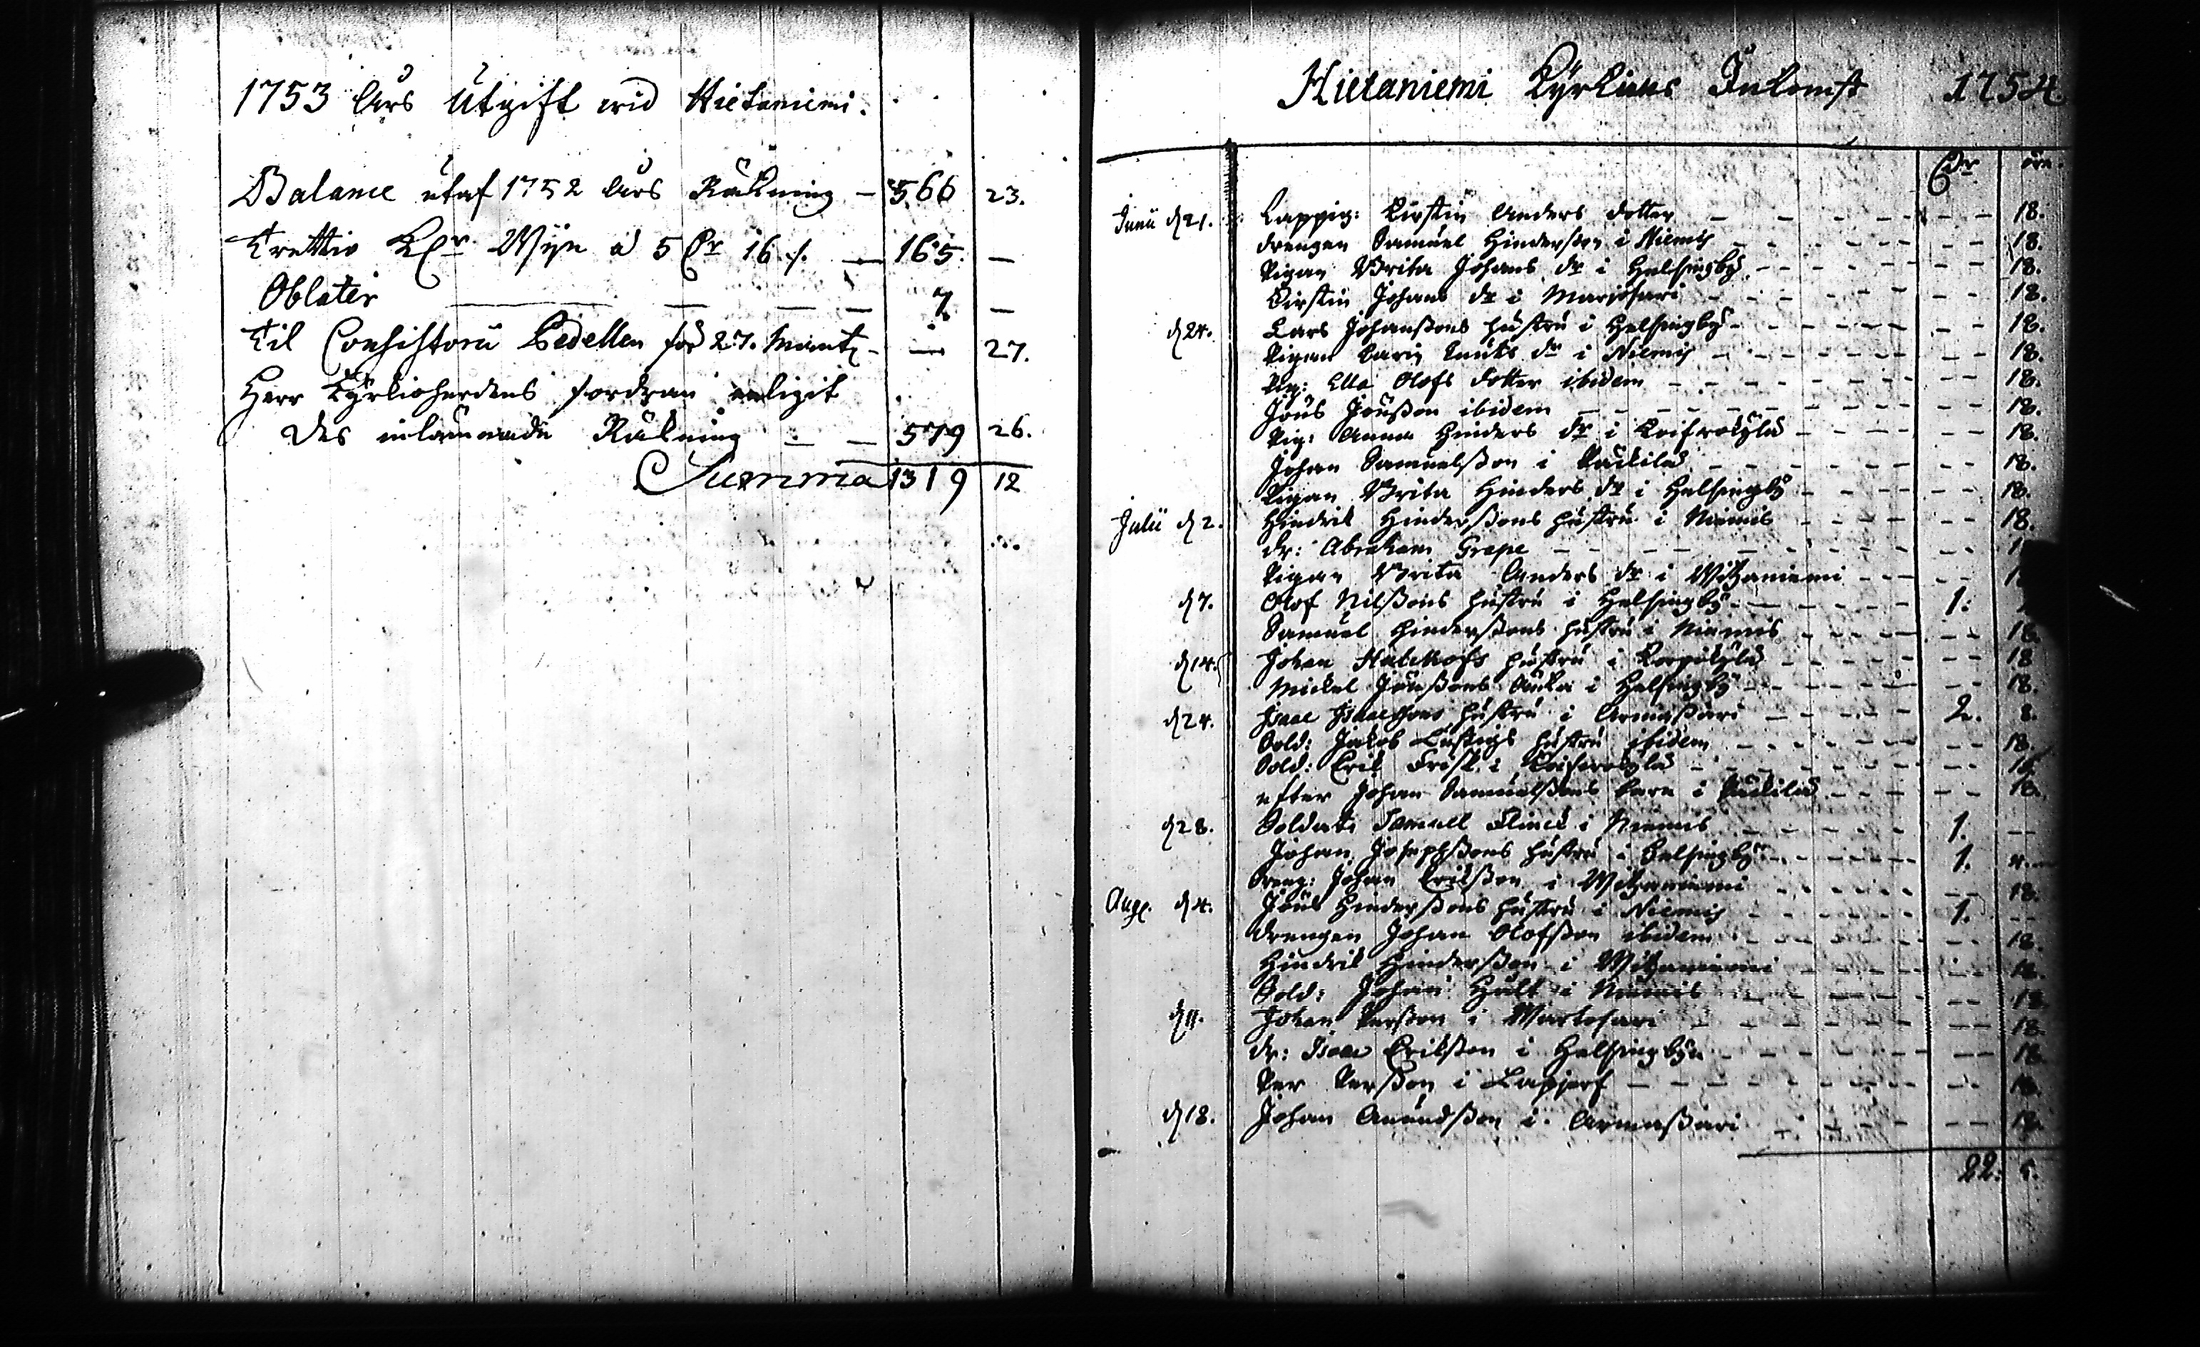 1753 års Utgift wid Hietaniemi.
Balance utaf 1752 års Räkning — 566 23.
Trettio Kr Wijn à 5 Dr 16 /. — 165. —
Oblater — — — — 7. —
Til Consistorii Pedellen för 27. — — 27.
Herr Kyrkioherdens fordran enligit
des inlämnade Räkning — — 579 26.
Summa 1319 12
Hietaniemi Kyrkians Inkomst 1754.
Dr öre.
Junii d 21. Lappig: Kirstin Anders dotter — — — 18.
drengen Samuel Hindersson i Niemis — — — 18.
Pigan Brita Johans dr i Helsingby — — — 18.
Kirstin Johans dr i Marjosari — — — 18.
d 24. Lars Johanssons hustru i Helsingby — — — 18.
Pigan Carin Knuts dr i Niemis — — — 18.
Pig: Ella Olofs dotter ibidem — — — 18.
Jöns Jönsson ibidem — — — 18.
Pig: Anna Hinders dr i — — — 18.
Johan Samuelsson i — — — 18.
Pigan Brita Hinders dr i Helsingby — — — 18.
Julii d 2. Hindrik Hinderssons hustru i Niemis — — — 18.
dr: Abraham Grape — — —
Pigan Brita Anders dr i Witzaniemi — — —
d 7. Olof Nilssons hustru i Helsingby — — 1.
Samuel Hinderssons hustru i Niemis — — — 18.
d 14. Johan hustru i Korpikylä — — — 18
Mickel Jönssons Änka i Helsingby — — — 18.
d 24. Isaac Isaacssons hustru i Armassari — — 2. 8.
Sold: Jakob Lustigs hustru ibidem — — — 18.
Sold: Erik Frisk i — — — 18.
efter Johan Samuelssons barn i — — — 18.
d 28. Soldat: Samuell Flinck i Niemis — — 1. —
Johan Josephssons hustru i Helsingby — — 1.
Dreng: Johan Eriksson i Witzaniemi — — — 18.
Aug. d 4. Jöns Hinderssons hustru i Niemis — — 1. —
drengen Johan Olofsson ibidem — — — 18.
Hindrik Hindersson i Witzaniemi — — — 18.
Sold: Johan i Niemis — — — 18.
d 11. Johan Persson i Markosari — — — 18.
dr: Isaac Eriksson i Helsingbyn — — — 18.
Per Persson i — — — 18.
d 18. Johan Amundsson i Armassari — — — 18.
22.